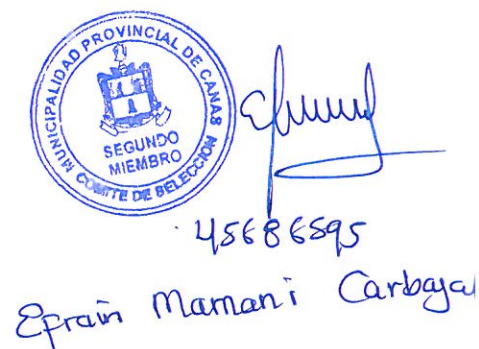 MUNICIPALIDAD PROVINCIAL DE CANAS
SEGUNDO
MIEMBRO
COMITE DE SELECCIÓN
45686595
Efrain Mamani Carbajal